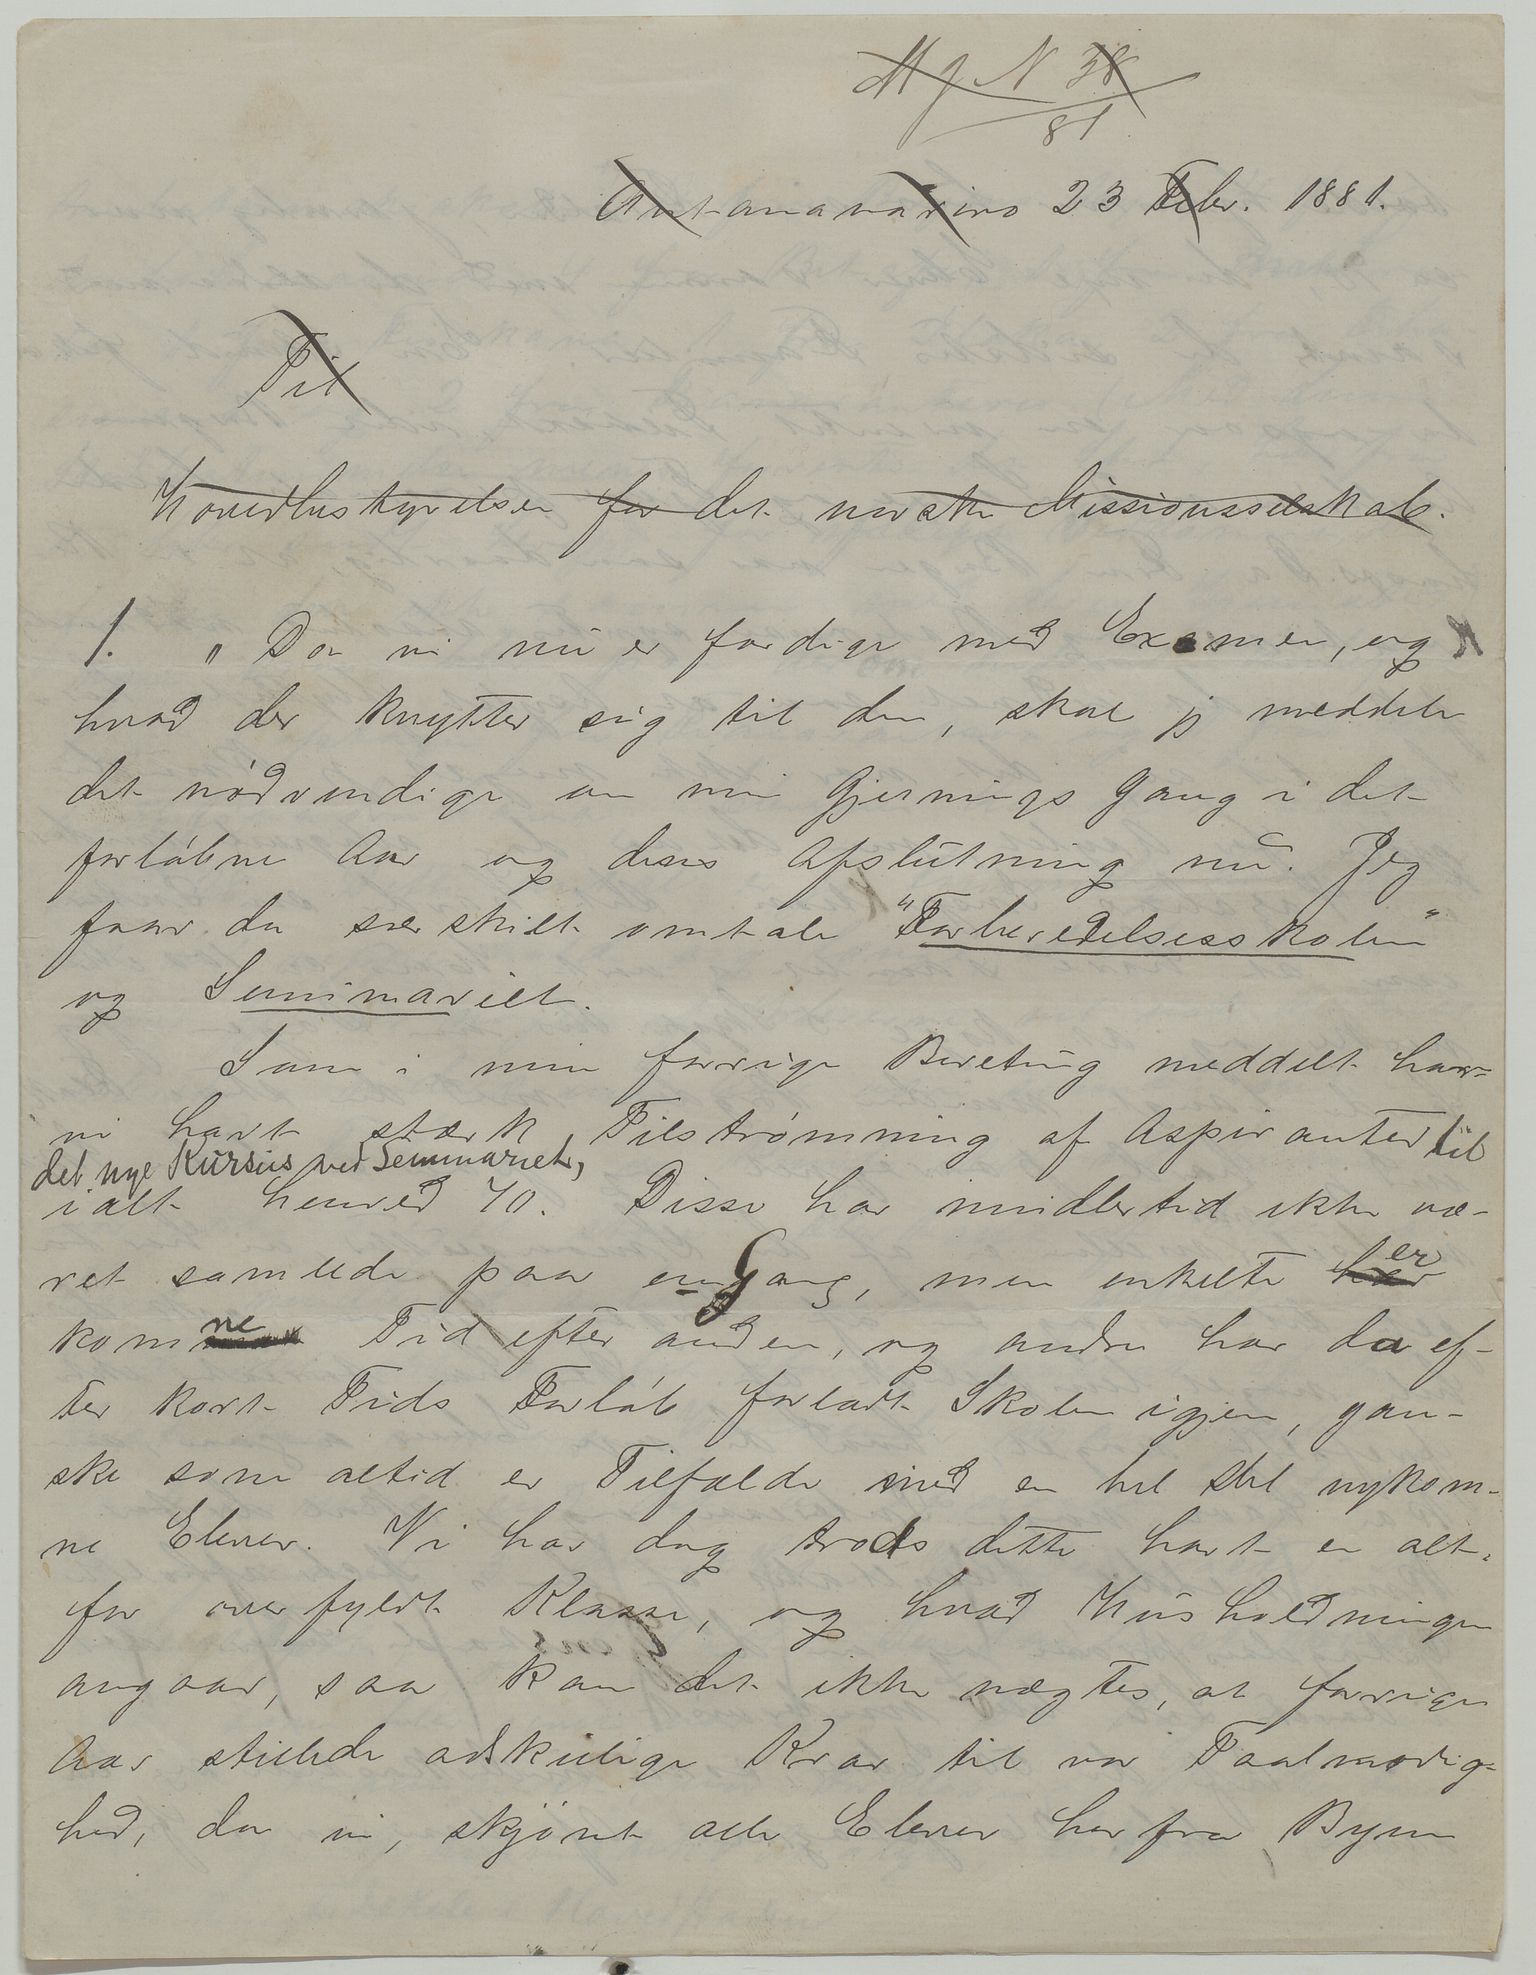 Mg N 38
81
Antananarivo 23 Febr. 1881.
Til
Hovedbestyrelsen for det norske Missionsselskab.
1. „ Da vi nu er færdige med Examen, og
hvad der knytter sig til den, skal jeg meddele
det nødvendige om min Gjernings Gang i det
forløbne Aar og dens Afslutning nu. Jeg
faar da særskilt omtale "Forberedelsesskolen"
og Seminariet.
Som i min forrige Beretning meddelt har
vi havt stærk Tilstrømning af Aspiranter til
det nye Kursus ved Seminariet,
ialt henved 70. Disse har imidlertid ikke væ-
ret samlede paa en Gang, men enkelte er
komne Tid efter anden, og andre har da ef-
ter kort Tids Forløb forladt Skolen igjen, gan-
ske som altid er Tilfælde med en hel Del nykom-
ne Elever. Vi har dog trods dette havt en alt-
for overfyldt Klasse, og hvad Husholdningen
angaar, saa kan det ikke nægtes, at forrige
Aar stillede adskillige Krav til vor Taalmodig-
hed, da vi, skjønt alle Elever her fra Byen